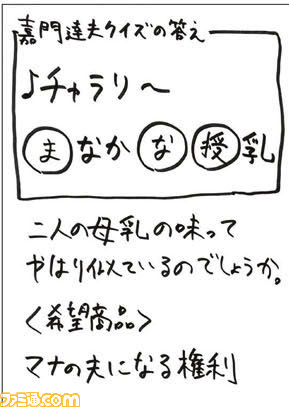 嘉門達夫クイズの答え
♪チャラリ〜
まなかな授乳
二人の母乳の味って
やはり似ているのでしょうか。
〈希望商品〉
マナの夫になる権利
ファミ通.com